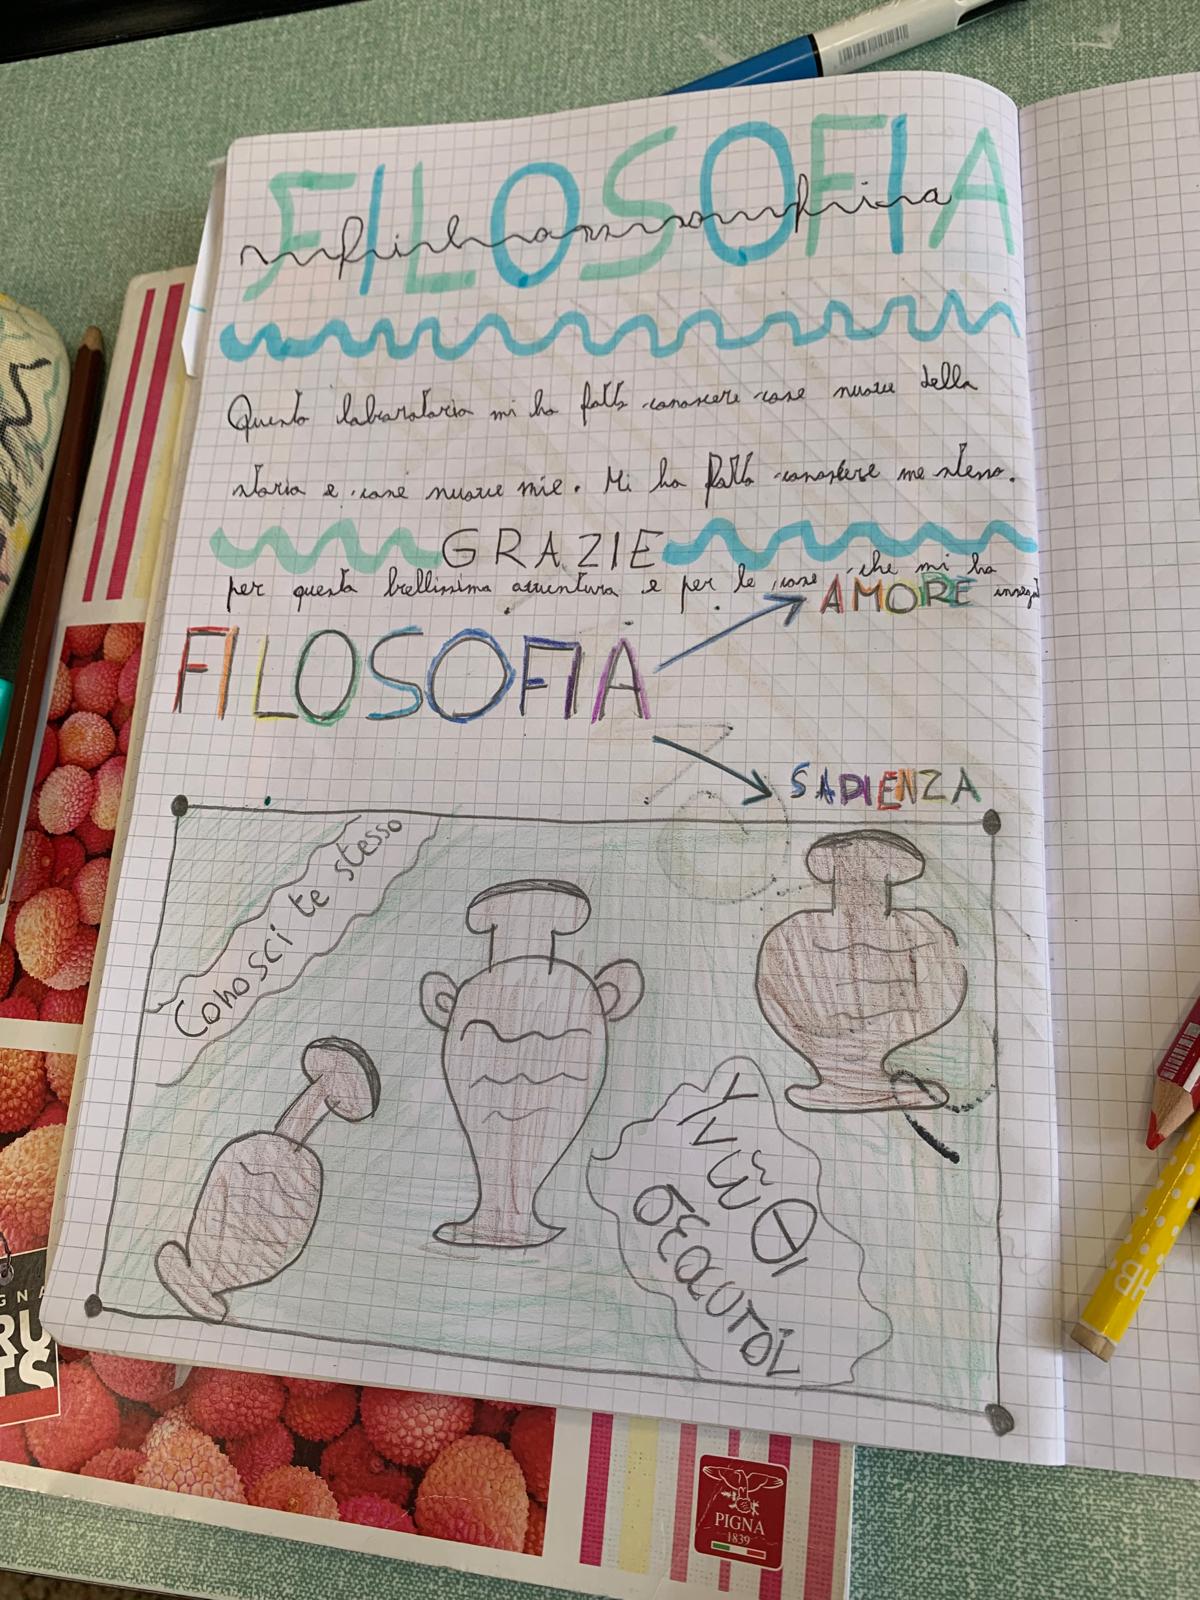 FILOSOFIA
filosofia
Questo laboratorio mi ha fatto conoscere cose nuove della
storia e cose nuove mie. Mi ha fatto conoscere me stesso.
GRAZIE
per questa bellissima avventura e per le cose che mi ha
AMORE
FILOSOFIA
SADIENZA
Conosci te stesso
γνῶθι
σεαυτόν
HB
PIGNA
1839